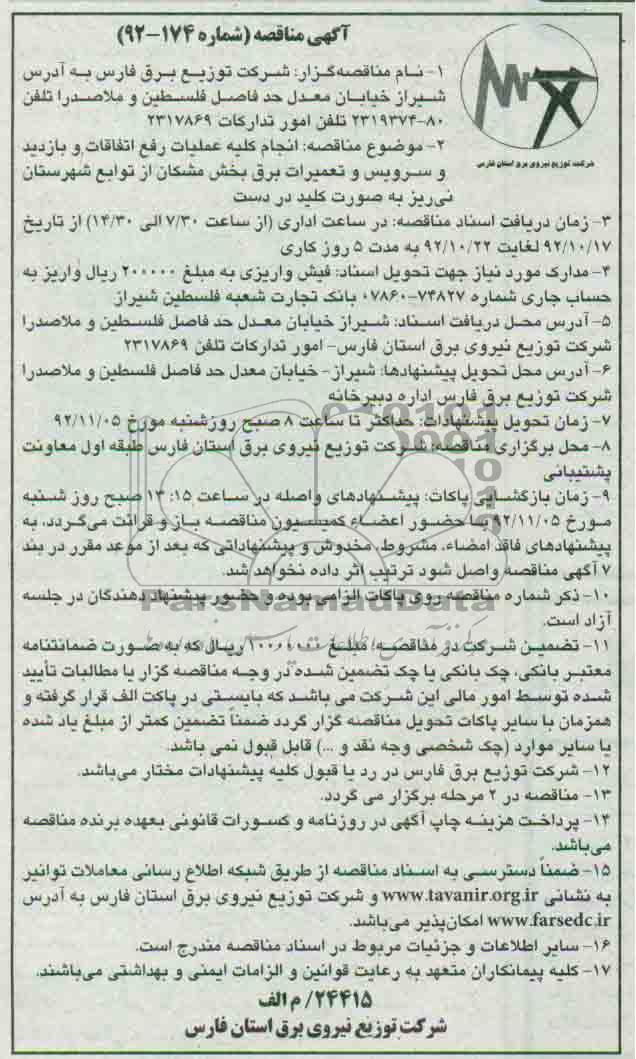 آگهی مناقصه (شماره ۱۷۴-۹۲)
شرکت توزیع نیروی برق استان فارس
۱- نام مناقصه‌گزار: شرکت توزیع برق فارس به آدرس
شیراز خیابان معدل حد فاصل فلسطین و ملاصدرا تلفن
۸۰-۲۳۱۹۳۷۴ تلفن امور تدارکات ۲۳۱۷۸۶۹
۲- موضوع مناقصه: انجام کلیه عملیات رفع اتفاقات و بازدید
و سرویس و تعمیرات برق بخش مشکان از توابع شهرستان
نی‌ریز به صورت کلید در دست
۳- زمان دریافت اسناد مناقصه: در ساعت اداری (از ساعت ۷/۳۰ الی ۱۴/۳۰) از تاریخ
۹۲/۱۰/۱۷ لغایت ۹۲/۱۰/۲۲ به مدت ۵ روز کاری
۴- مدارک مورد نیاز جهت تحویل اسناد: فیش واریزی به مبلغ ۲۰۰۰۰۰ ریال واریز به
حساب جاری شماره ۷۴۸۲۷-۰۷۸۶۰ بانک تجارت شعبه فلسطین شیراز
۵- آدرس محل دریافت اسناد: شیراز خیابان معدل حد فاصل فلسطین و ملاصدرا
شرکت توزیع نیروی برق استان فارس- امور تدارکات تلفن ۲۳۱۷۸۶۹
۶- آدرس محل تحویل پیشنهادها: شیراز- خیابان معدل حد فاصل فلسطین و ملاصدرا
شرکت توزیع برق فارس اداره دبیرخانه
۷- زمان تحویل پیشنهادات: حداکثر تا ساعت ۸ صبح روزشنبه مورخ ۹۲/۱۱/۰۵
۸- محل برگزاری مناقصه: شرکت توزیع نیروی برق استان فارس طبقه اول معاونت
پشتیبانی
۹- زمان بازگشایی پاکات: پیشنهادهای واصله در ساعت ۱۳:۱۵ صبح روز شنبه
مورخ ۹۲/۱۱/۰۵ با حضور اعضاء کمیسیون مناقصه باز و قرائت می‌گردد، به
پیشنهادهای فاقد امضاء، مشروط، مخدوش و پیشنهاداتی که بعد از موعد مقرر در بند
۷ آگهی مناقصه واصل شود ترتیب اثر داده نخواهد شد.
۱۰- ذکر شماره مناقصه روی پاکات الزامی بوده و حضور پیشنهاد دهندگان در جلسه
آزاد است.
ParsNamadData
۱۱- تضمین شرکت در مناقصه: مبلغ ریال که به صورت ضمانتنامه
معتبر بانکی، چک بانکی یا چک تضمین شده در وجه مناقصه گزار یا مطالبات تأیید
شده توسط امور مالی این شرکت می باشد که بایستی در پاکت الف قرار گرفته و
همزمان با سایر پاکات تحویل مناقصه گزار گردد ضمناً تضمین کمتر از مبلغ یاد شده
یا سایر موارد (چک شخصی وجه نقد و ...) قابل قبول نمی باشد.
۱۲- شرکت توزیع برق فارس در رد یا قبول کلیه پیشنهادات مختار می‌باشد.
۱۳- مناقصه در ۲ مرحله برگزار می گردد.
۱۴- پرداخت هزینه چاپ آگهی در روزنامه و کسورات قانونی بعهده برنده مناقصه
می‌باشد.
۱۵- ضمناً دسترسی به اسناد مناقصه از طریق شبکه اطلاع رسانی معاملات توانیر
به نشانی www.tavanir.org.ir و شرکت توزیع نیروی برق استان فارس به آدرس
www.farsedc.ir امکان‌پذیر می‌باشد.
۱۶- سایر اطلاعات و جزئیات مربوط در اسناد مناقصه مندرج است.
۱۷- کلیه پیمانکاران متعهد به رعایت قوانین و الزامات ایمنی و بهداشتی می‌باشند.
۲۴۴۱۵/ م الف
شرکت توزیع نیروی برق استان فارس